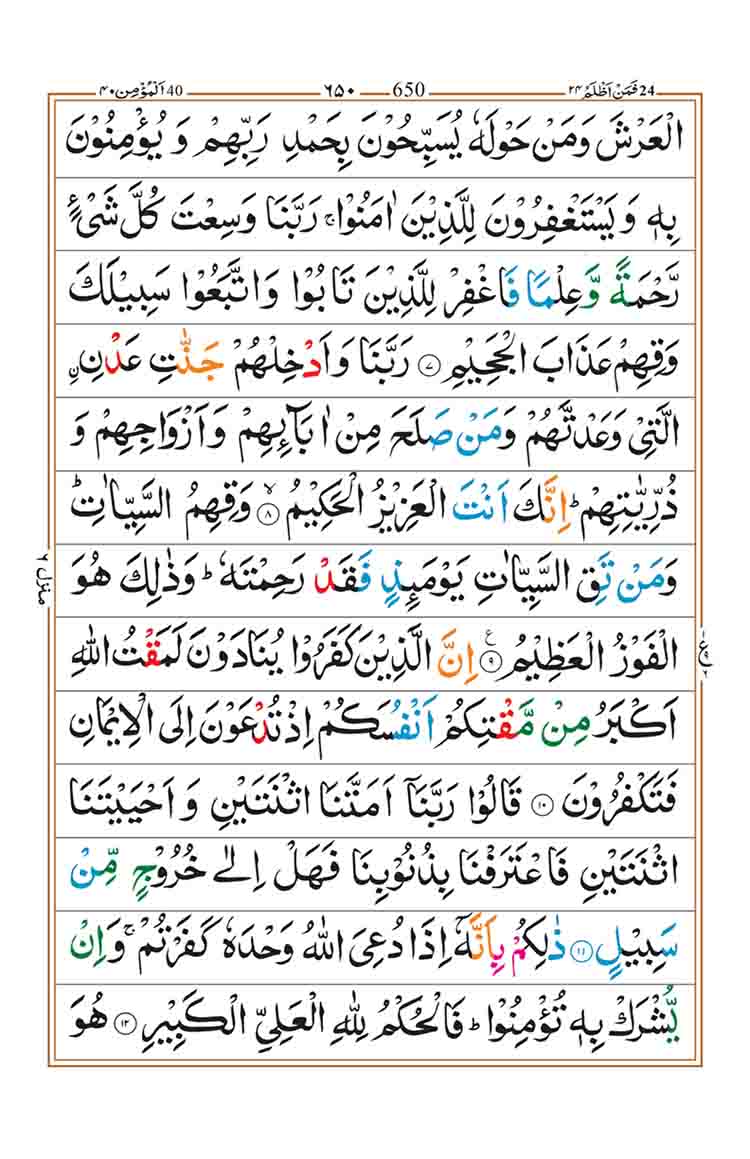 24 فَمَنْ اَظْلَمُ ۲۴ 650 ۶۵۰ 40 اَلْمُؤْمِن ۴۰
الْعَرْشَ وَمَنْ حَوْلَهٗ يُسَبِّحُوْنَ بِحَمْدِ رَبِّهِمْ وَ يُؤْمِنُوْنَ
بِهٖ وَيَسْتَغْفِرُوْنَ لِلَّذِيْنَ اٰمَنُوْا ۚ رَبَّنَا وَسِعْتَ كُلَّ شَیْءٍ
رَّحْمَةً وَّعِلْمًا فَاغْفِرْ لِلَّذِيْنَ تَابُوْا وَاتَّبَعُوْا سَبِيْلَكَ
وَقِهِمْ عَذَابَ الْجَحِيْمِ ۷ رَبَّنَا وَاَدْخِلْهُمْ جَنّٰتِ عَدْنِ ِ۟
الَّتِیْ وَعَدْتَّهُمْ وَمَنْ صَلَحَ مِنْ اٰبَآئِهِمْ وَاَزْوَاجِهِمْ وَ
ذُرِّيّٰتِهِمْ ؕ اِنَّكَ اَنْتَ الْعَزِيْزُ الْحَكِيْمُ ۙ۸ وَقِهِمُ السَّيِّاٰتِ ؕ
وَمَنْ تَقِ السَّيِّاٰتِ يَوْمَئِذٍ فَقَدْ رَحِمْتَهٗ ؕ وَذٰلِكَ هُوَ
الْفَوْزُ الْعَظِيْمُ ۹ ع اِنَّ الَّذِيْنَ كَفَرُوْا يُنَادَوْنَ لَمَقْتُ اللّٰهِ
اَكْبَرُ مِنْ مَّقْتِكُمْ اَنْفُسَكُمْ اِذْ تُدْعَوْنَ اِلَى الْاِيْمَانِ
فَتَكْفُرُوْنَ ۱۰ قَالُوْا رَبَّنَآ اَمَتَّنَا اثْنَتَيْنِ وَ اَحْيَيْتَنَا
اثْنَتَيْنِ فَاعْتَرَفْنَا بِذُنُوْبِنَا فَهَلْ اِلٰى خُرُوْجٍ مِّنْ
سَبِيْلٍ ۱۱ ذٰلِكُمْ بِاَنَّهٗٓ اِذَا دُعِیَ اللّٰهُ وَحْدَهٗ كَفَرْتُمْ ۚ وَاِنْ
يُّشْرَكْ بِهٖ تُؤْمِنُوْا ؕ فَالْحُكْمُ لِلّٰهِ الْعَلِیِّ الْكَبِيْرِ ۱۲ هُوَ
منزل ۶